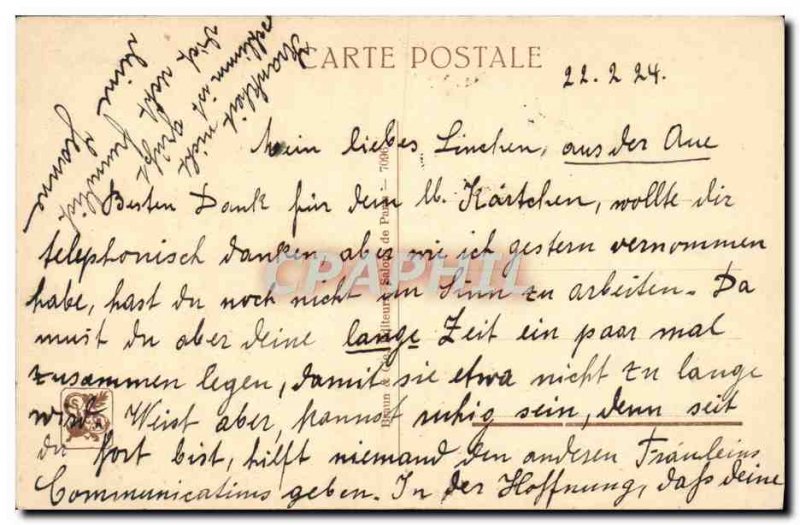 CARTE POSTALE
22.2.24.
Mein liebes Linchen, aus der Aue
Besten Dank für dem lb. Kärtchen, wollte dir
telephonisch danken, aber wie ich gestern vernommen
habe, hast du noch nicht im Sinn zu arbeiten. Da
must du aber deine lange Zeit ein paar mal
zusammen legen, damit sie etwa nicht zu lange
wird. Weist aber, kannst ruhig sein, denn seit
du fort bist, hilft niemand den anderen Fräuleins
Communications geben. In der Hoffnung, daß deine
Krankheit nicht
schlimm ist grüßt
dich recht
deine
Hanne
Braun & Editeurs Salons de Paris — 7096
CPAPHIL
S A